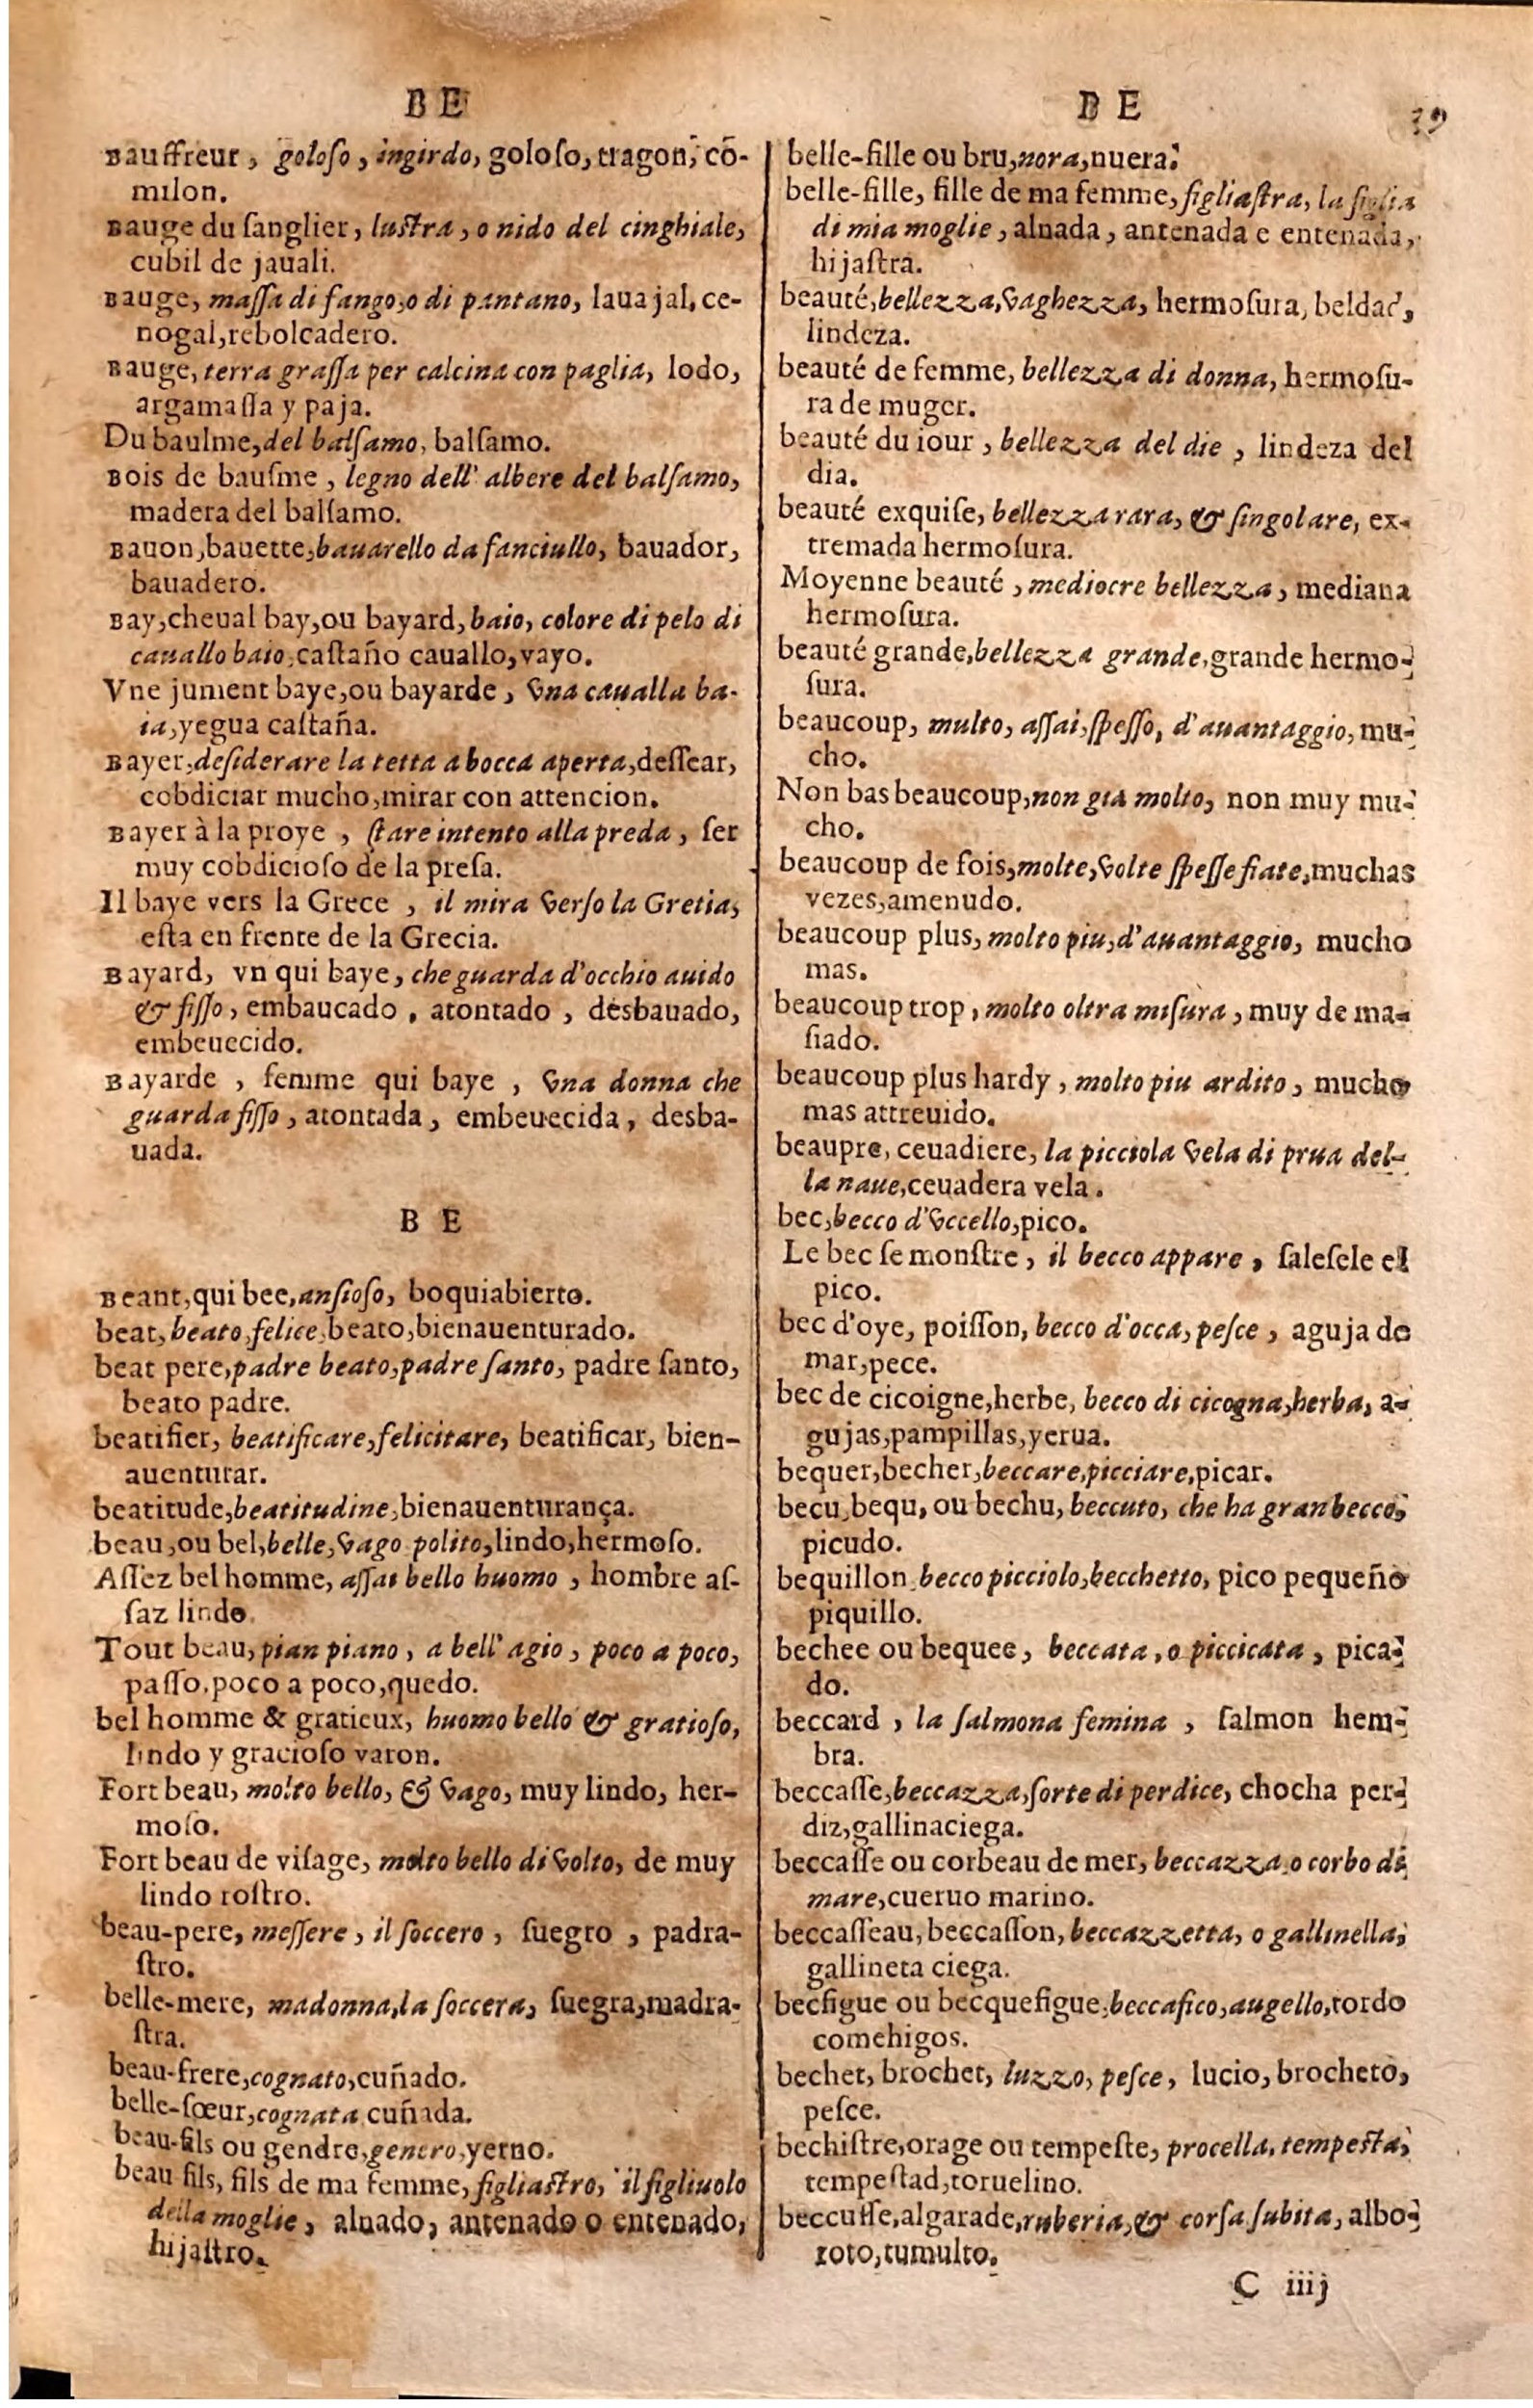 BE
Bauffreur, goloſo, ingirdo, goloſo, tragon, cō-
milon.
Bauge du ſanglier, luſtra, o nido del cinghiale,
cubil de jauali.
Bauge, maſſa di fango, o di pantano, lauajal, ce-
nogal, rebolcadero.
Bauge, terra graſſa per calcina con paglia, lodo,
argamaſſa y paja.
Du baulme, del balſamo, balſamo.
Bois de bauſme, legno dell' albere del balſamo,
madera del balſamo.
Bauon, bauette, bauarello da fanciullo, bauador,
bauadero.
Bay, cheual bay, ou bayard, baio, colore di pelo di
cauallo baio, caſtaño cauallo, vayo.
Vne jument baye, ou bayarde, vna caualla ba-
ia, yegua caſtaña.
Bayer, deſiderare la tetta a bocca aperta, deſſear,
cobdiciar mucho, mirar con attencion.
Bayer à la proye, ſtare intento alla preda, ſer
muy cobdicioſo de la preſa.
Il baye vers la Grece, il mira verſo la Gretia,
eſta en frente de la Grecia.
Bayard, vn qui baye, che guarda d'occhio auido
& fiſſo, embaucado, atontado, desbauado,
embeuecido.
Bayarde, femme qui baye, vna donna che
guarda fiſſo, atontada, embeuecida, desba-
uada.
BE
Beant, qui bee, anſioſo, boquiabierto.
beat, beato, felice, beato, bienauenturado.
beat pere, padre beato, padre ſanto, padre ſanto,
beato padre.
beatifier, beatificare, felicitare, beatificar, bien-
auenturar.
beatitude, beatitudine, bienauenturança.
beau, ou bel, belle, vago polito, lindo, hermoſo.
Aſſez bel homme, aſſai bello huomo, hombre aſ-
ſaz lindo.
Tout beau, pian piano, a bell' agio, poco a poco,
paſſo, poco a poco, quedo.
bel homme & gratieux, huomo bello & gratioſo,
lindo y gracioſo varon.
Fort beau, molto bello, & vago, muy lindo, her-
moſo.
Fort beau de viſage, molto bello di volto, de muy
lindo roſtro.
beau-pere, meſſere, il ſoccero, ſuegro, padra-
ſtro.
belle-mere, madonna, la ſoccera, ſuegra, madra-
ſtra.
beau-frere, cognato, cuñado.
belle-ſœur, cognata, cuñada.
beau-fils ou gendre, genero, yerno.
beau fils, fils de ma femme, figliaſtro, il figliuolo
della moglie, alnado, antenado o entenado,
hijaſtro.
BE 39
belle-fille ou bru, nora, nuera.
belle-fille, fille de ma femme, figliaſtra, la figlia
di mia moglie, alnada, antenada e entenada,
hijaſtra.
beauté, bellezza, vaghezza, hermoſura, beldad,
lindeza.
beauté de femme, bellezza di donna, hermoſu-
ra de muger.
beauté du iour, bellezza del die, lindeza del
dia.
beauté exquiſe, bellezza rara, & ſingolare, ex-
tremada hermoſura.
Moyenne beauté, mediocre bellezza, mediana
hermoſura.
beauté grande, bellezza grande, grande hermo-
ſura.
beaucoup, multo, aſſai, ſpeſſo, d'auantaggio, mu-
cho.
Non bas beaucoup, non gia molto, non muy mu-
cho.
beaucoup de fois, molte, volte ſpeſſe fiate, muchas
vezes, amenudo.
beaucoup plus, molto piu, d'auantaggio, mucho
mas.
beaucoup trop, molto oltra miſura, muy de ma-
ſiado.
beaucoup plus hardy, molto piu ardito, mucho
mas attreuido.
beaupre, ceuadiere, la picciola vela di prua del-
la naue, ceuadera vela.
bec, becco d'vccello, pico.
Le bec ſe monſtre, il becco appare, ſaleſele el
pico.
bec d'oye, poiſſon, becco d'occa, peſce, aguja de
mar, pece.
bec de cicoigne, herbe, becco di cicogna, herba, a-
gujas, pampillas, yerua.
bequer, becher, beccare, picciare, picar.
becu, bequ, ou bechu, beccuto, che ha gran becco,
picudo.
bequillon, becco picciolo, becchetto, pico pequeño
piquillo.
bechee ou bequee, beccata, o piccicata, pica-
do.
beccard, la ſalmona femina, ſalmon hem-
bra.
beccaſſe, beccazza, ſorte di perdice, chocha per-
diz, gallina ciega.
beccaſſe ou corbeau de mer, beccazza o corbo di
mare, cueruo marino.
beccaſſeau, beccaſſon, beccazzetta, o gallinella,
gallineta ciega.
becfigue ou becquefigue, beccafico, augello, tordo
comehigos.
bechet, brochet, luzzo, peſce, lucio, brocheto,
peſce.
bechiſtre, orage ou tempeſte, procella, tempeſta,
tempeſtad, toruelino.
beccuſſe, algarade, ruberia, & corſa ſubita, albo-
roto, tumulto.
C iiij